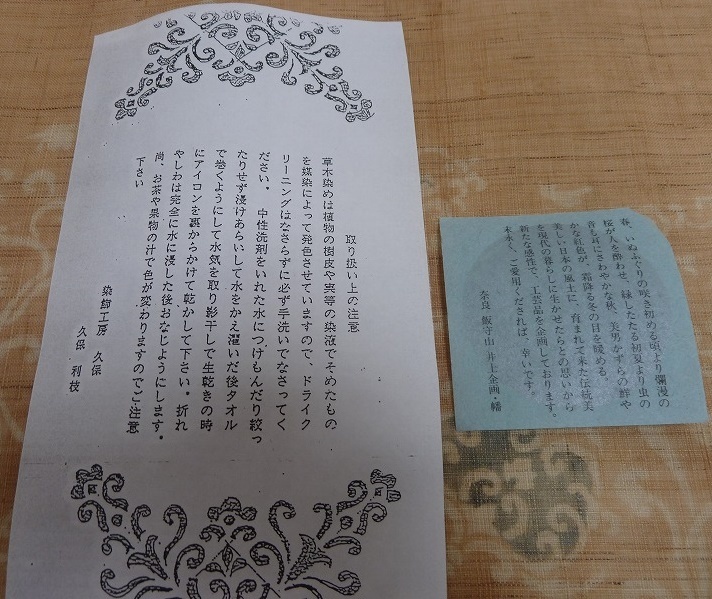 取り扱い上の注意
草木染めは植物の樹皮や実等の染液でそめたもの
を媒染によって発色させていますので、ドライク
リーニングはなさらずに必ず手洗いでなさってく
ださい。 中性洗剤をいれた水につけもんだり絞っ
たりせず浸けあらいして水をかえ濯いだ後タオル
で巻くようにして水気を取り影干しで生乾きの時
にアイロンを裏からかけて乾かして下さい。折れ
やしわは完全に水に浸した後おなじようにします。
尚、お茶や果物の汁で色が変わりますのでご注意
下さい
染織工房 久保
久保 利枝
春、いぬふぐりの咲き初める頃より爛漫の
桜が人を酔わせ、緑したたる初夏より虫の
音も耳にさわやかな秋、美男かずらの鮮や
かな紅色が、霜降る冬の目を暖める、
美しい日本の風土に、育まれて来た伝統美
を現代の暮らしに生かせたらとの思いから
新たな感性で、工芸品を企画しております。
末永く、ご愛用くだされば、幸いです。
奈良 飯守山 井上企画・幡